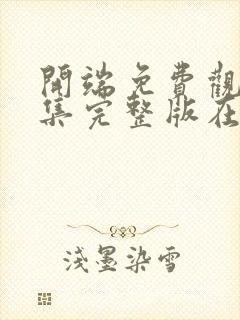 開端免費觀
集完整版在
淺墨染雪